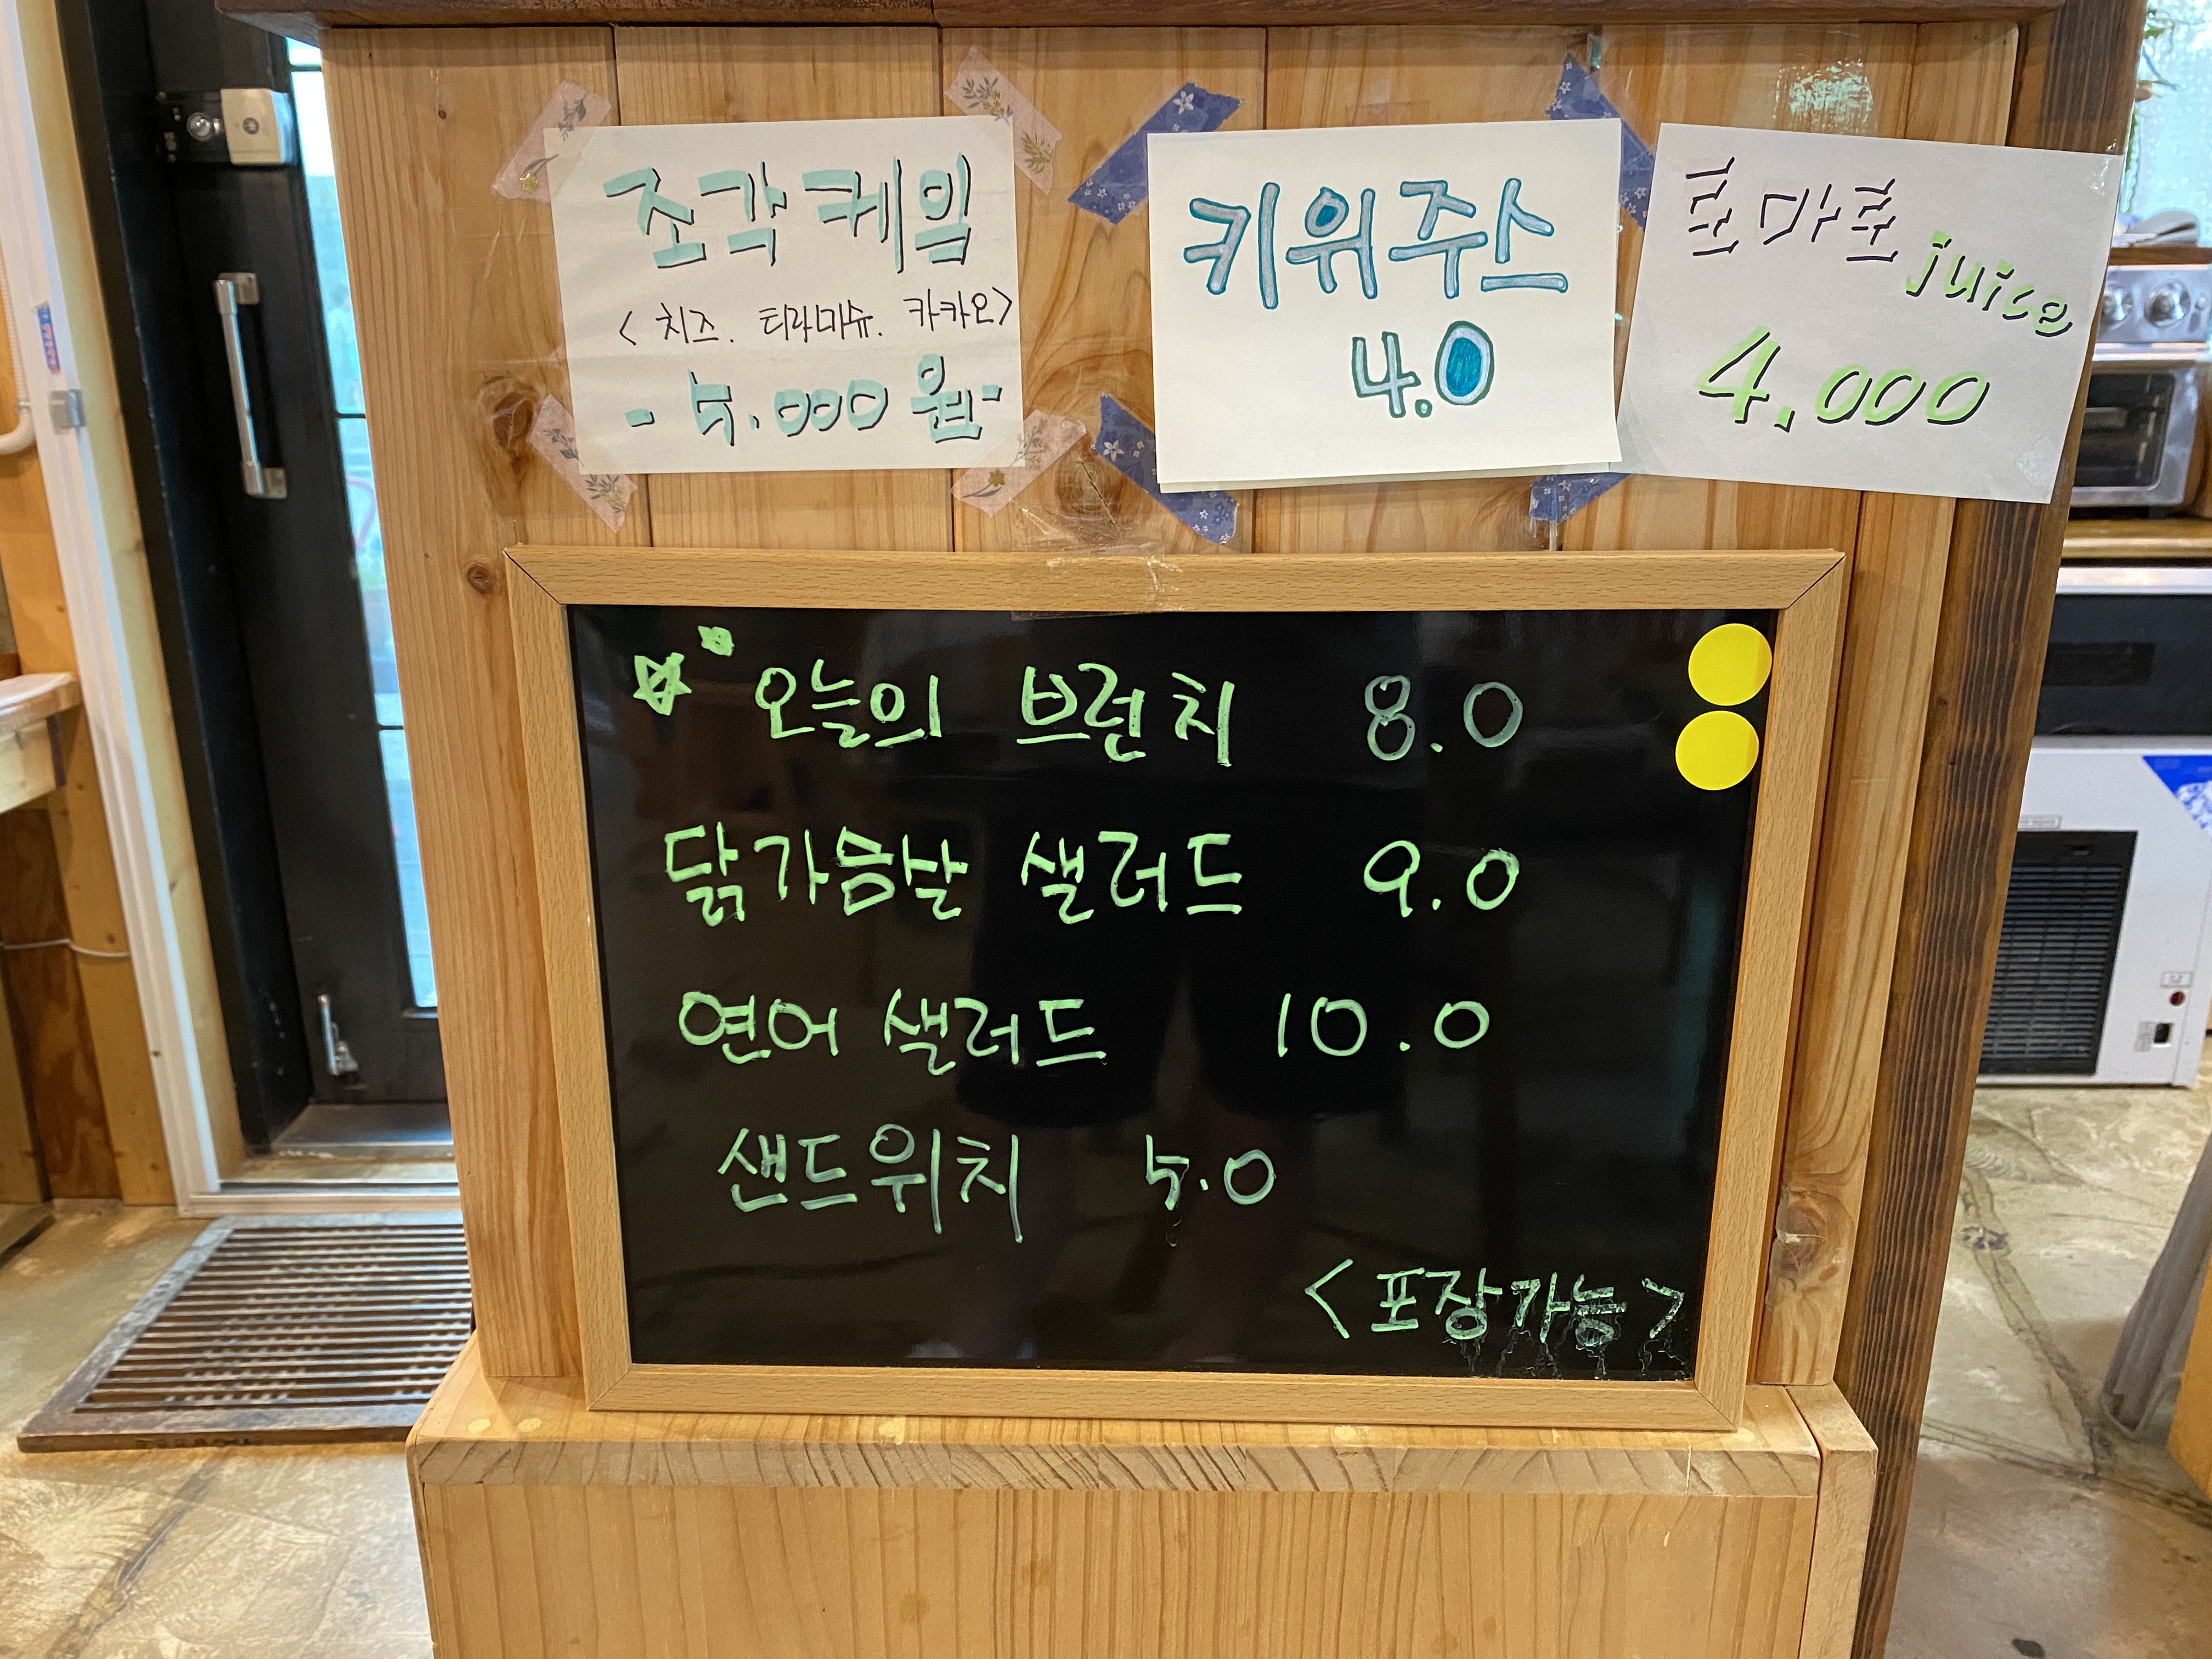 조각케익
< 치즈. 티라미슈. 카카오>
- 5.000 원-
키위주스
4.0
토마토 juice
4.000
오늘의 브런치 8.0
닭가슴살 샐러드 9.0
연어 샐러드 10.0
샌드위치 5.0
<포장가능>